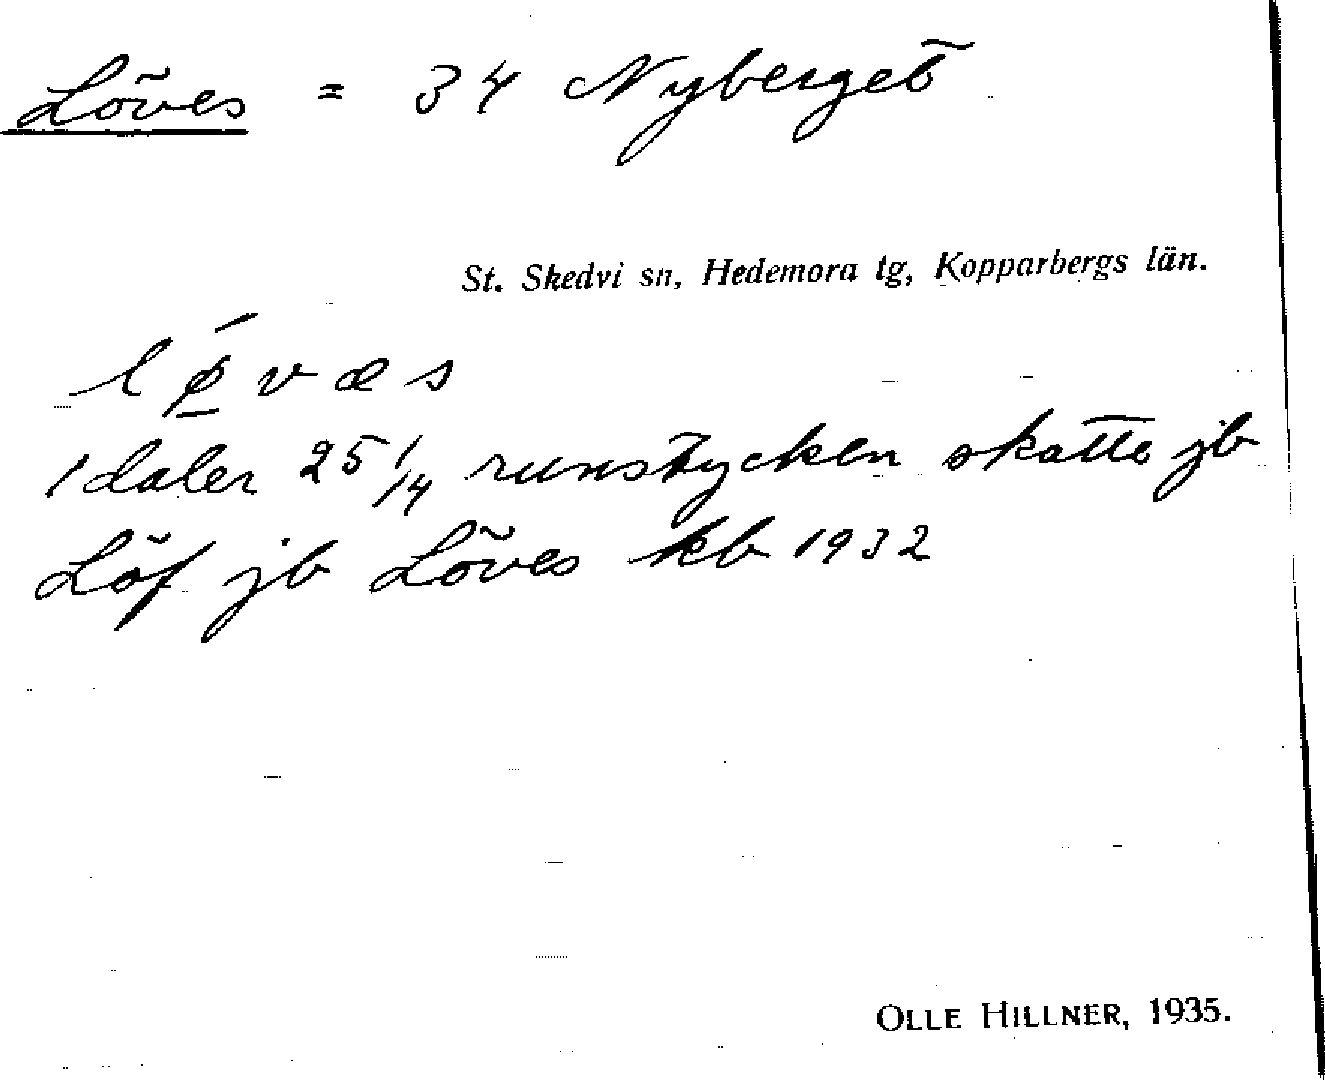 Löves = 34 Nyberget
St. Skedvi sn, Hedemora tg, Kopparbergs län.
lǿ̱væs
1 daler 25 1/4 runstycken skatte jb
Löf jb Löves kb 1932
OLLE HILLNER, 1935.